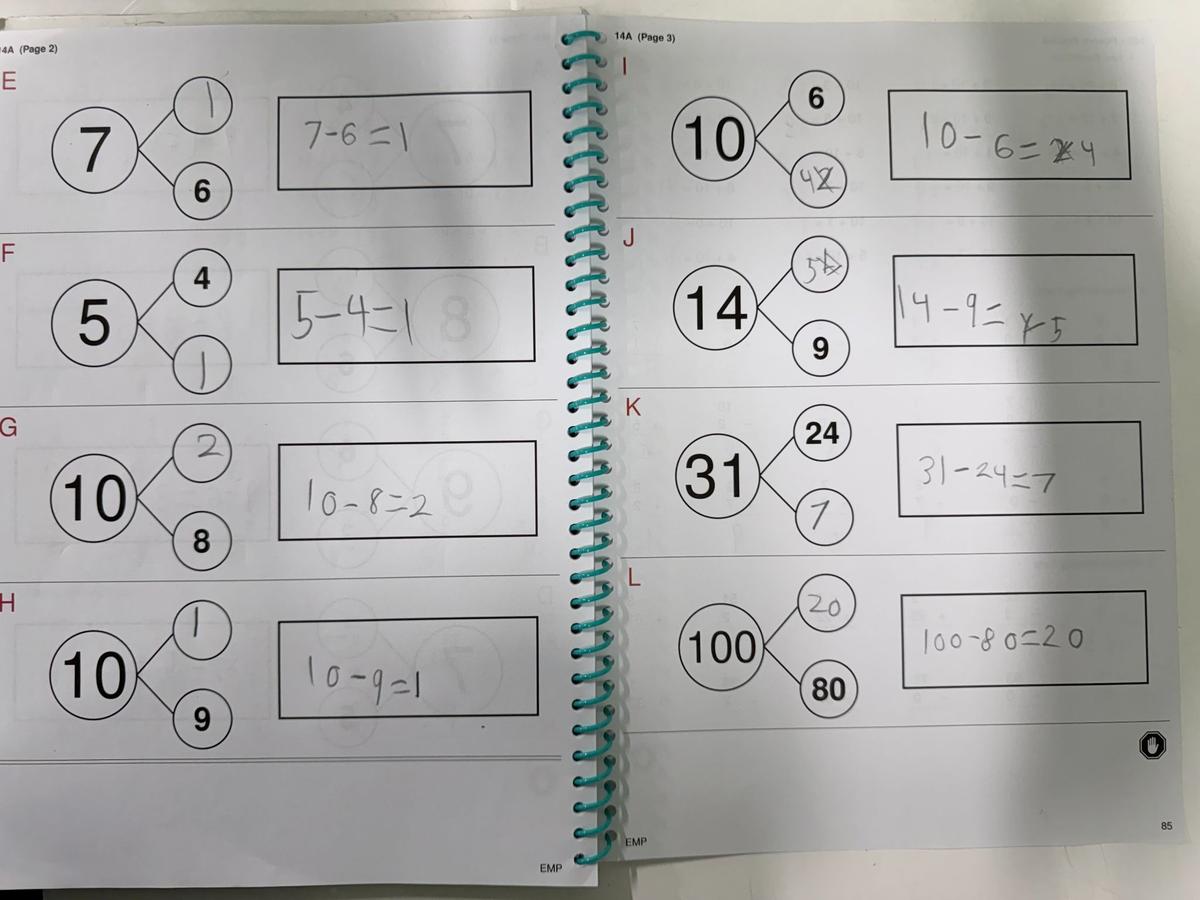 14A (Page 2)
E
7
1
6
7-6=1
F
5
4
1
5-4=1
G
10
2
8
10-8=2
H
10
1
9
10-9=1
EMP
14A (Page 3)
I
10
6
4
10-6=4
J
14
5
9
14-9=5
K
31
24
7
31-24=7
L
100
20
80
100-80=20
EMP
85